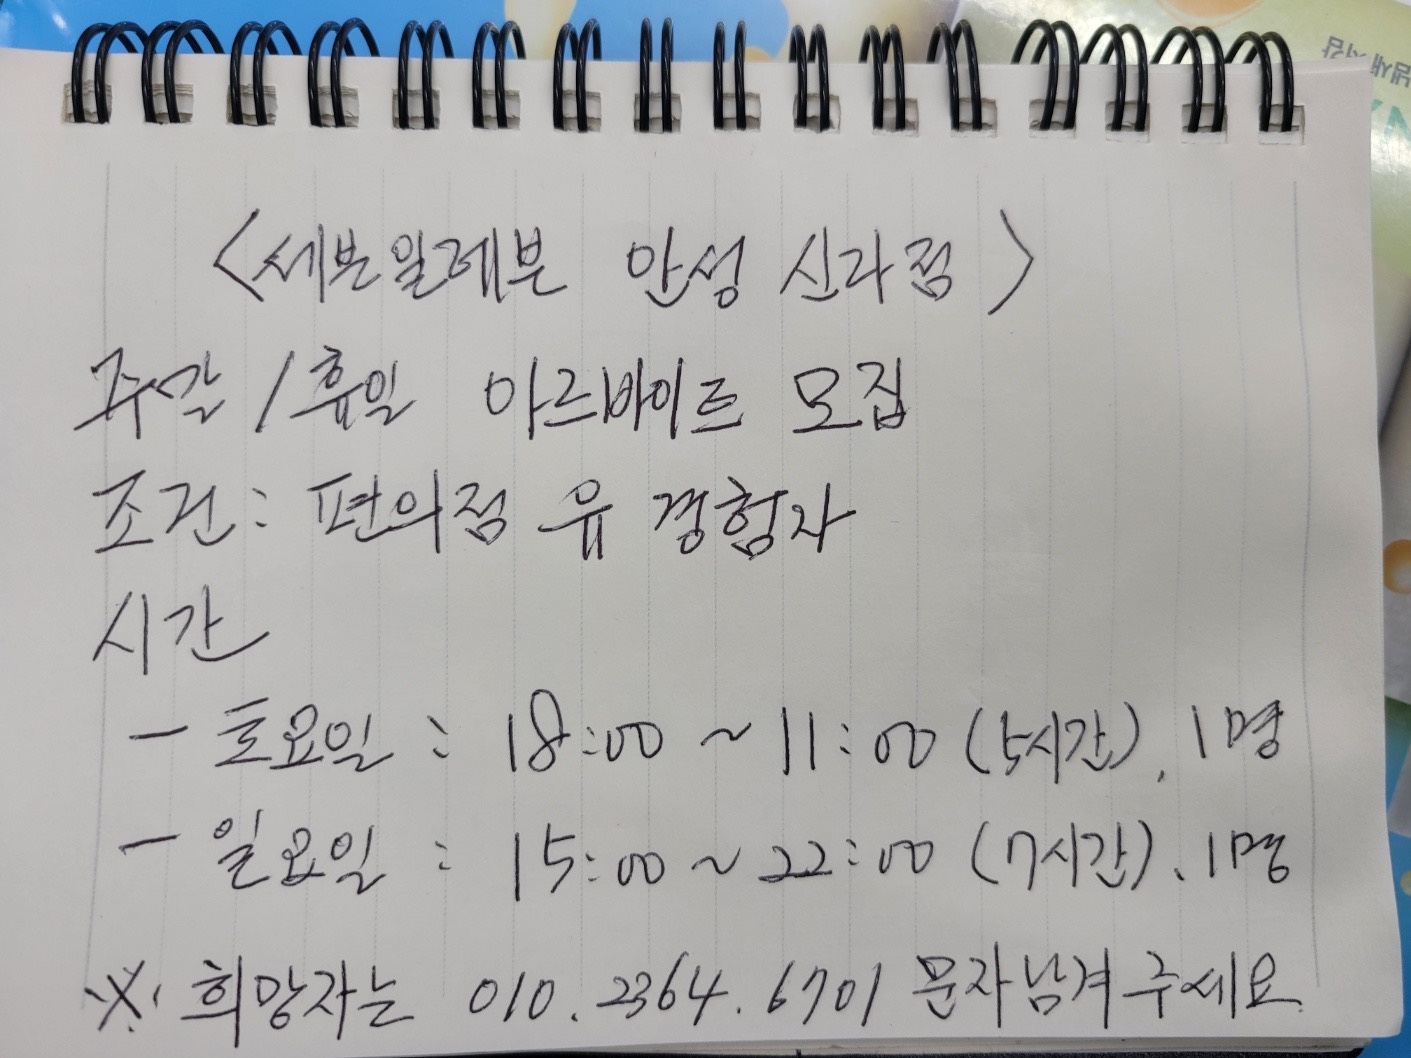 <세븐일레븐 안성 신라점>
주간/휴일 아르바이트 모집
조건: 편의점 유 경험자
시간
- 토요일 : 18:00 ~ 11:00 (5시간), 1명
- 일요일 : 15:00 ~ 22:00 (7시간), 1명
※ 희망자는 010.2364.6701 문자남겨 주세요.